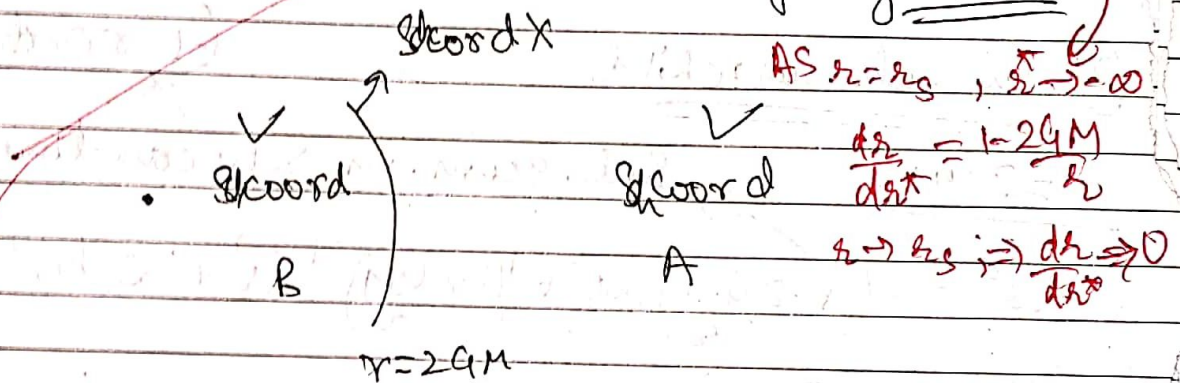 Schcord X
AS r = r_s , r* → -∞
✓ ✓
Schcoord Schcoord
dr/dr* = 1 - 2GM/r
B A
r → r_s ; ⇒ dr/dr* ⇒ 0
r = 2GM